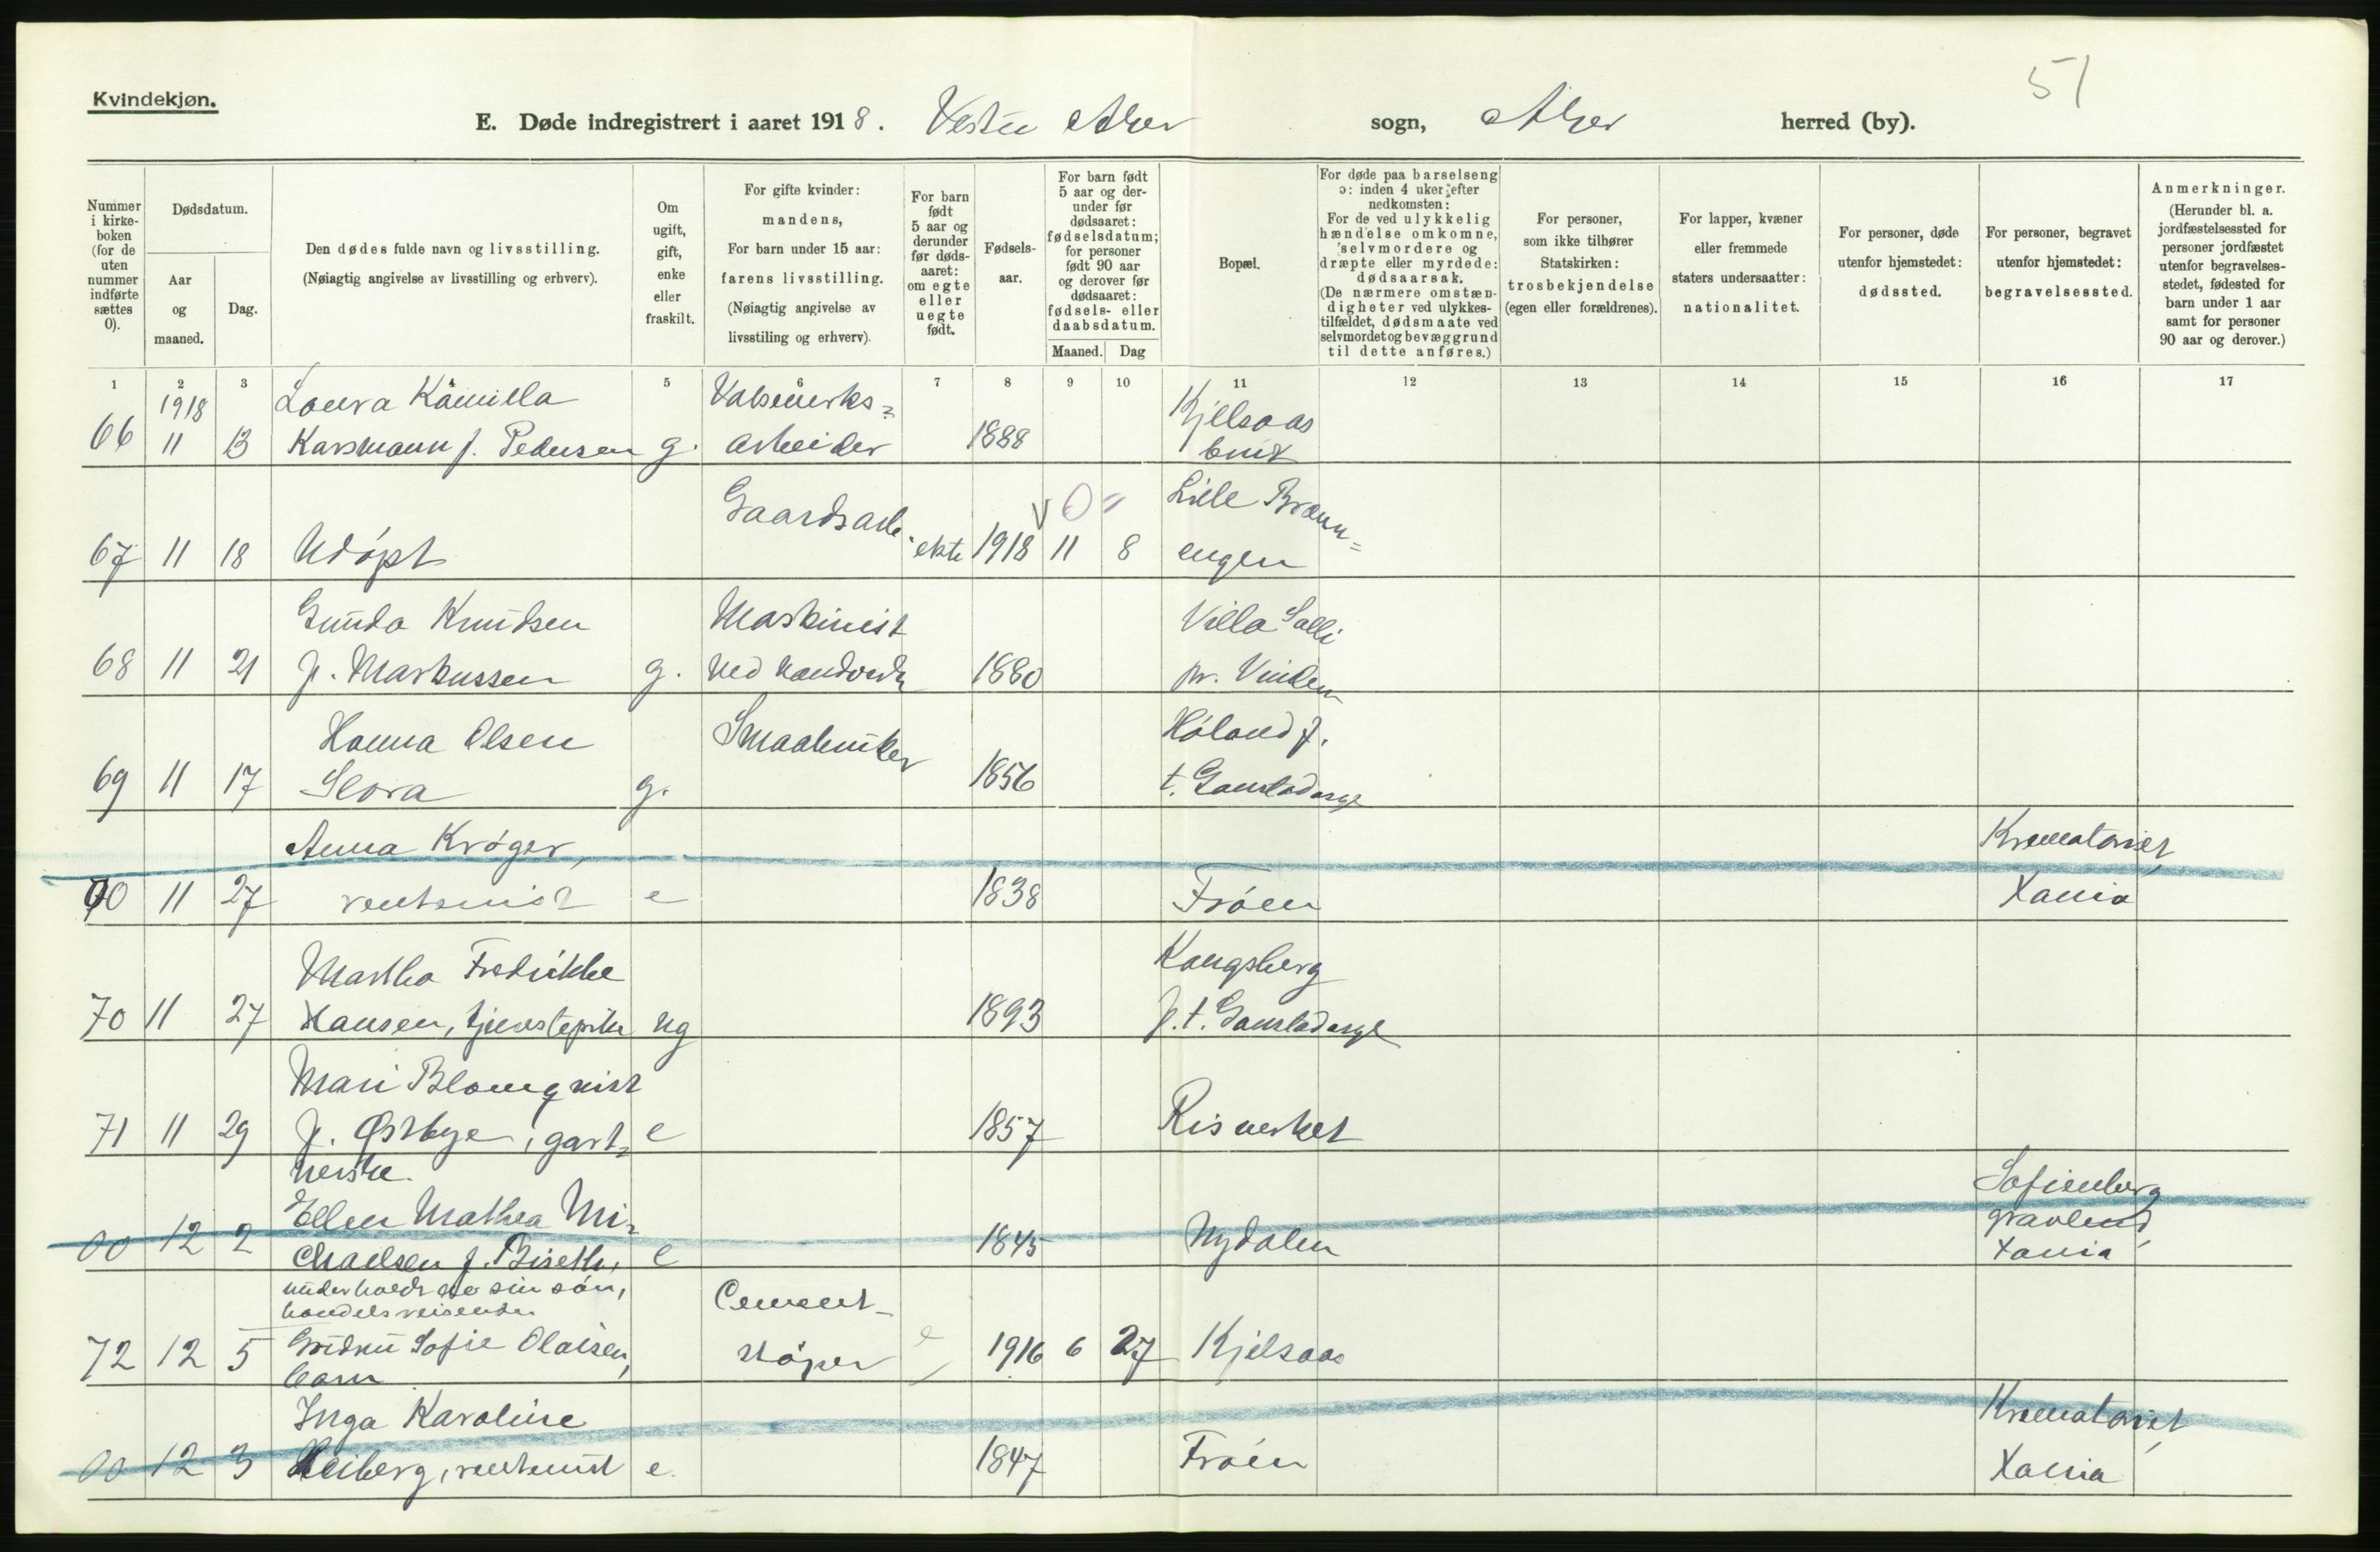 51
Kvindekjøn.
E. Døde indregistrert i aaret 1918. Vestre Aker sogn, Aker herred (by).
Nummer i kirke-boken (for de uten nummer indførte sættes 0).
Dødsdatum.
Aar og maaned.
Dag.
Den dødes fulde navn og livsstilling.
(Nøiagtig angivelse av livsstilling og erhverv).
Om ugift, gift, enke eller fraskilt.
For gifte kvinder: mandens,
For barn under 15 aar: farens livsstilling.
(Nøiagtig angivelse av livsstiling og erhverv).
For barn født 5 aar og derunder før døds-aaret: om egte eller uegte født.
Fødsels-aar.
For barn født 5 aar og der-under før dødsaaret: fødselsdatum; for personer født 90 aar og derover før dødsaaret: fødsels- eller daabsdatum.
Maaned. Dag
Bopæl.
For døde paa barselseng ɔ: inden 4 uker efter nedkomsten:
For de ved ulykkelig hændelse omkomne, selvmordere og dræpte eller myrdede: dødsaarsak.
(De nærmere omstæn-digheter ved ulykkes-tilfældet, dødsmaate ved selvmordet og bevæggrund til dette anføres.)
For personer, som ikke tilhører Statskirken: trosbekjendelse (egen eller forældrenes).
For lapper, kvæner eller fremmede staters undersaatter: nationalitet.
For personer, døde utenfor hjemstedet: dødssted.
For personer, begravet utenfor hjemstedet: begravelsessted.
Anmerkninger.
(Herunder bl. a. jordfæstelsessted for personer jordfæstet utenfor begravelses-stedet, fødested for barn under 1 aar samt for personer 90 aar og derover.)
1 2 3 4 5 6 7 8 9 10 11 12 13 14 15 16 17
1918
Laura Kamilla Valseverks= Kjelsaas
66 11 13 Karsmann f. Pedersen g. arbeider 1888 bruk
Gaardsarb. V 0 " Lille Brænn=
67 11 18 Udøpt ekte 1918 11 8 engen
Gunda Knudsen Maskinist Villa Solli
68 11 21 f. Markussen g. ved vandverk 1880 pr. Vinderen
Hanna Olsen Smaabruker Høland p.
69 11 17 Slora g. 1856 t. Gaustadasyl
Anna Krøger, Krematoriet,
00 11 27 rentenist e 1838 Frøen Xania
Martha Fredrikke Kongsberg
70 11 27 Hansen, tjenestepike ug 1893 p.t. Gaustadasyl
Mari Blomqvist
71 11 29 f. Østbye, gart= e 1857 Risverket
nerske.
Ellen Mathea Mi= Sofienberg
00 12 2 chaelsen f. Biseth, e 1845 Nydalen gravlund,
Xania
underholdt av sin søn,
handelsreisende
Cement-
72 12 5 Gudrun Sofie Olaisen, støper e 1916 6 27 Kjelsaas
barn
Inga Karoline Krematoriet,
00 12 3 Heiberg, rentenist e. 1847 Frøen Xania